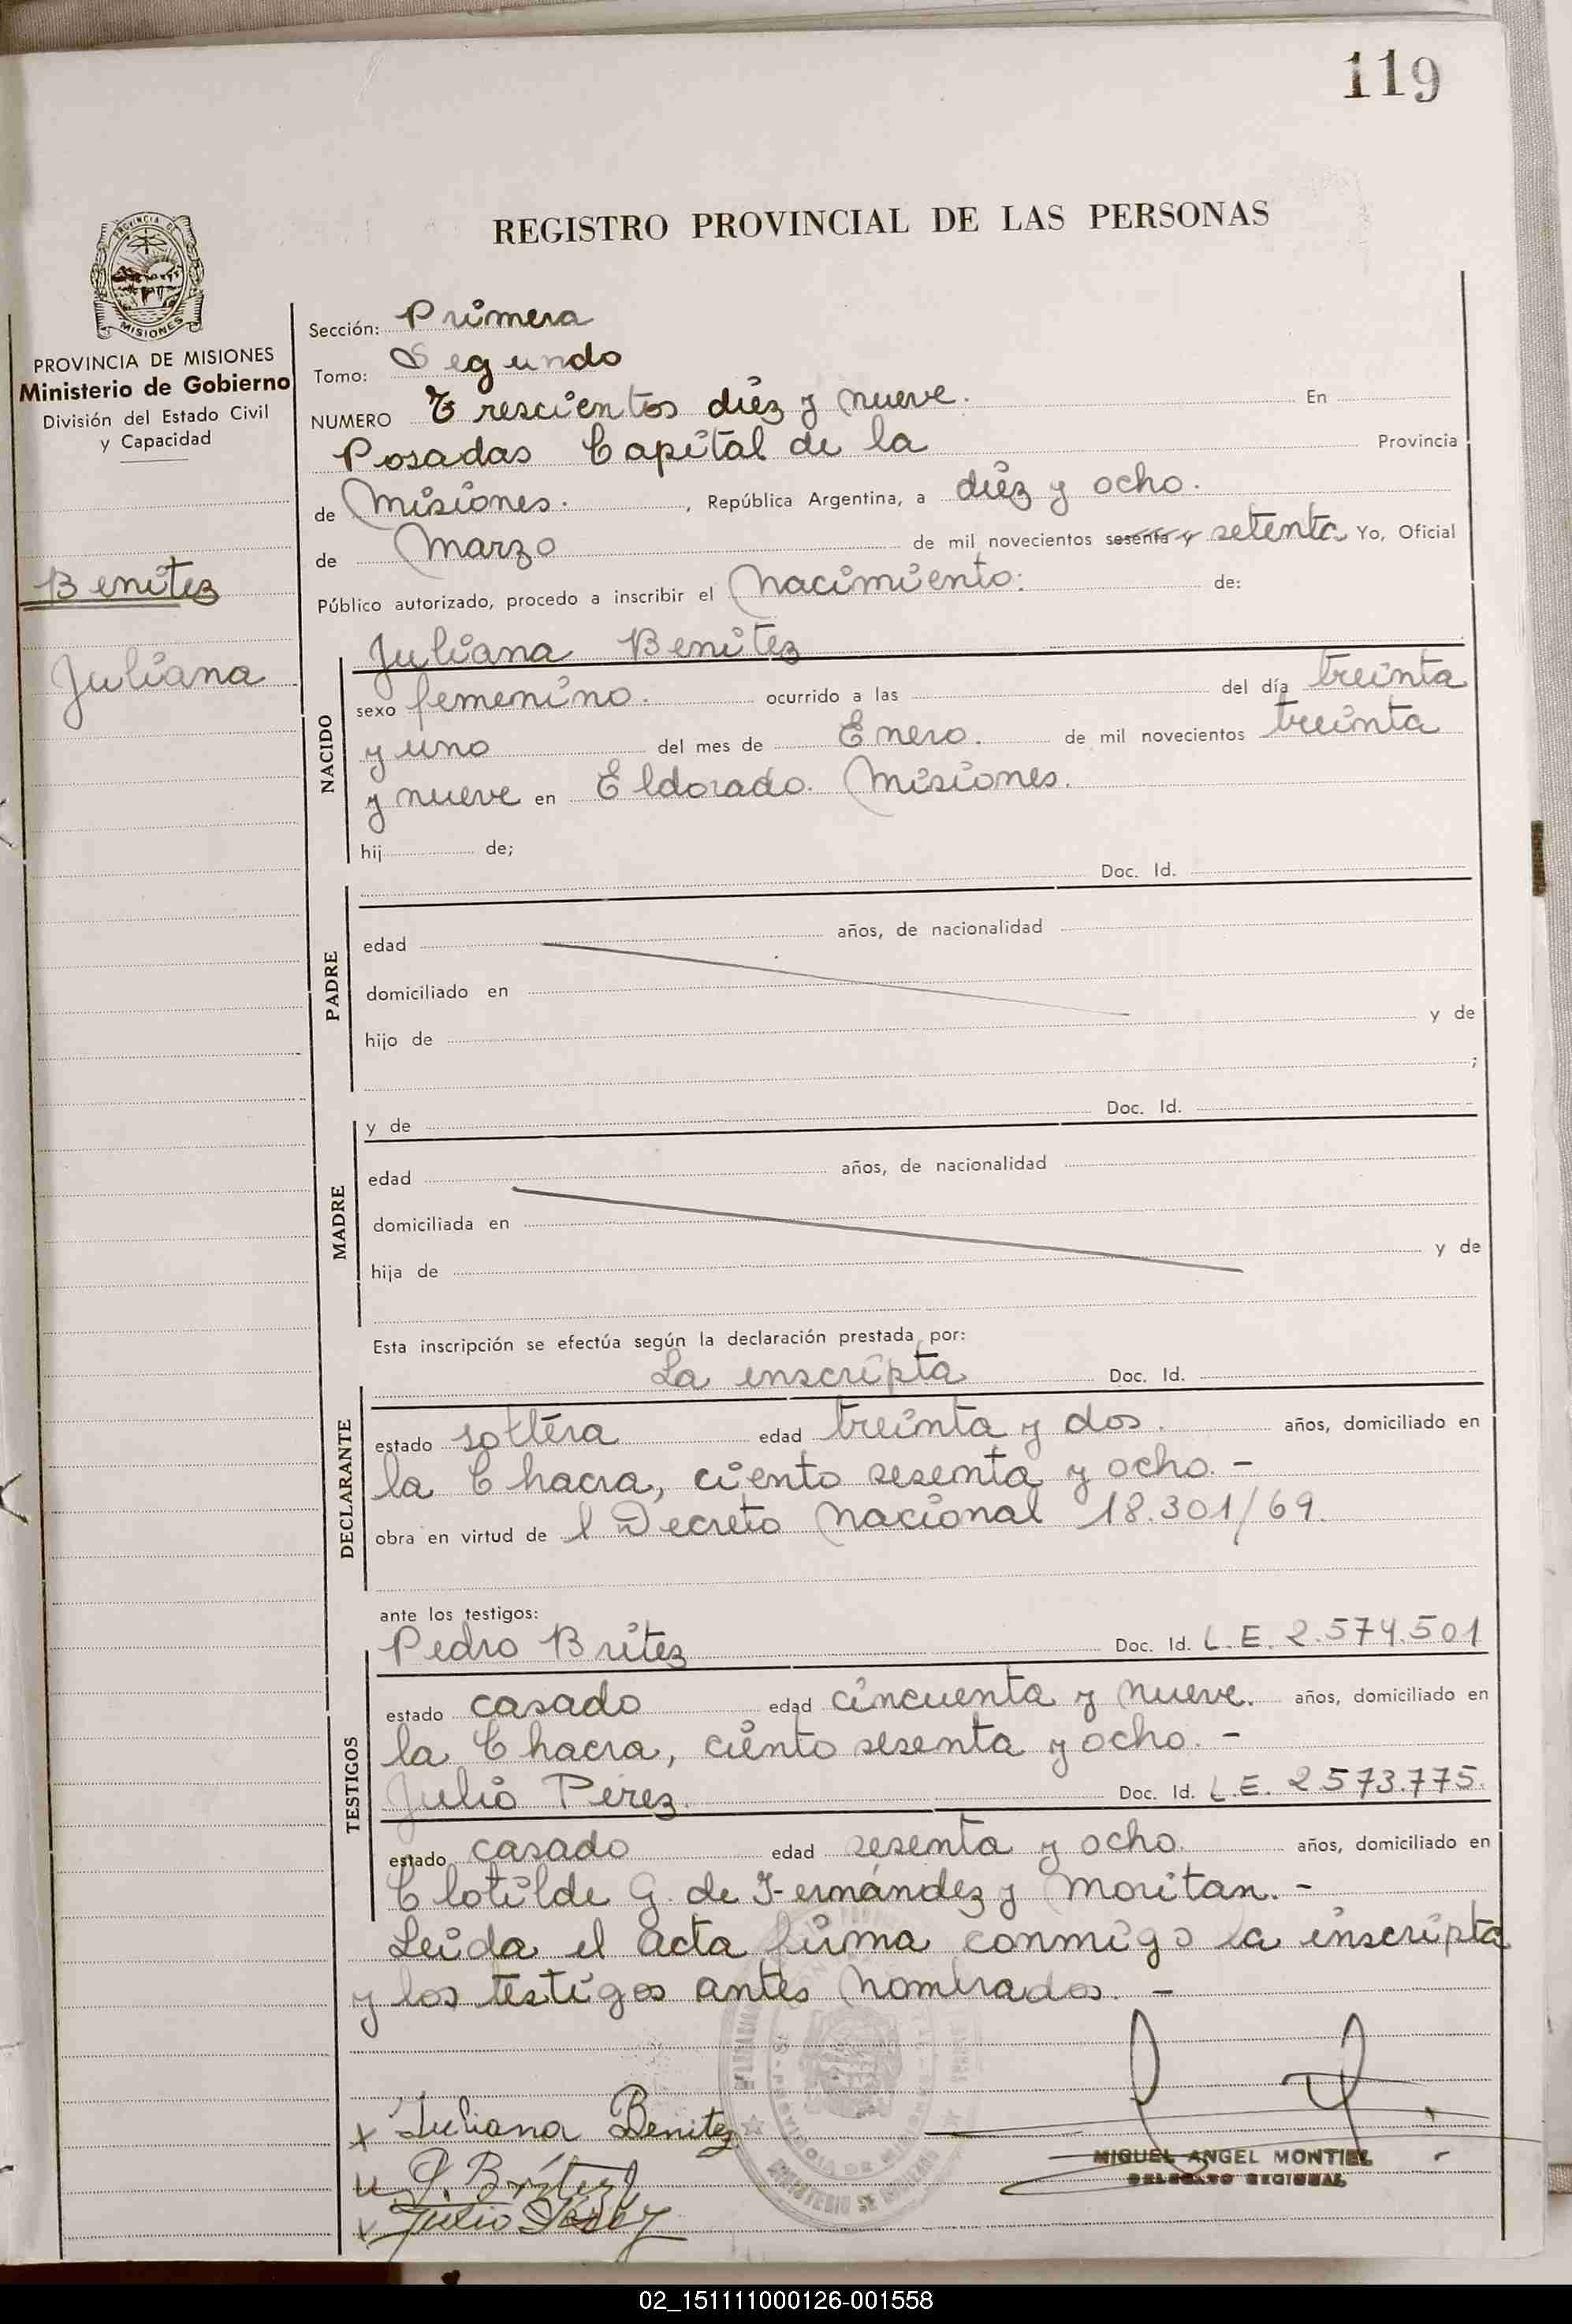 119
REGISTRO PROVINCIAL DE LAS PERSONAS
PROVINCIA DE MISIONES
Ministerio de Gobierno
División del Estado Civil
y Capacidad
Benitez
Juliana
Sección: Primera
Tomo: Segundo
NUMERO Trescientos diéz y nueve. En
Posadas Capital de la Provincia
de Misiones. , República Argentina, a diéz y ocho.
de Marzo de mil novecientos sesenta y setenta Yo, Oficial
Público autorizado, procedo a inscribir el Nacimiento: de:
NACIDO
Juliana Benitez
sexo femenino. ocurrido a las del día treinta
y uno del mes de Enero. de mil novecientos treinta
y nueve en Eldorado. Misiones.
hij de;
PADRE
Doc. Id.
edad años, de nacionalidad
domiciliado en
hijo de y de
;
MADRE
y de Doc. Id.
edad años, de nacionalidad
domiciliada en
hija de y de
Esta inscripción se efectúa según la declaración prestada por:
DECLARANTE
La inscripta Doc. Id.
estado soltéra edad treinta y dos. años, domiciliado en
la Chacra, ciento sesenta y ocho. -
obra en virtud de l Decreto Nacional 18.301/69.
ante los testigos:
TESTIGOS
Pedro Britez Doc. Id. L.E. 2.574.501
estado casado edad cincuenta y nueve. años, domiciliado en
la Chacra, ciento sesenta y ocho. -
Julio Perez. Doc. Id. L.E. 2.573.775.
estado casado edad sesenta y ocho. años, domiciliado en
Clotilde G. de Fernández y Moritan. -
Leida el acta firma conmigo la inscripta
y los testigos antes nombrados. -
Juliana Benitez
P. Britez
Julio
MIGUEL ANGEL MONTIEL
DELEGADO REGIONAL
02_151111000126-001558